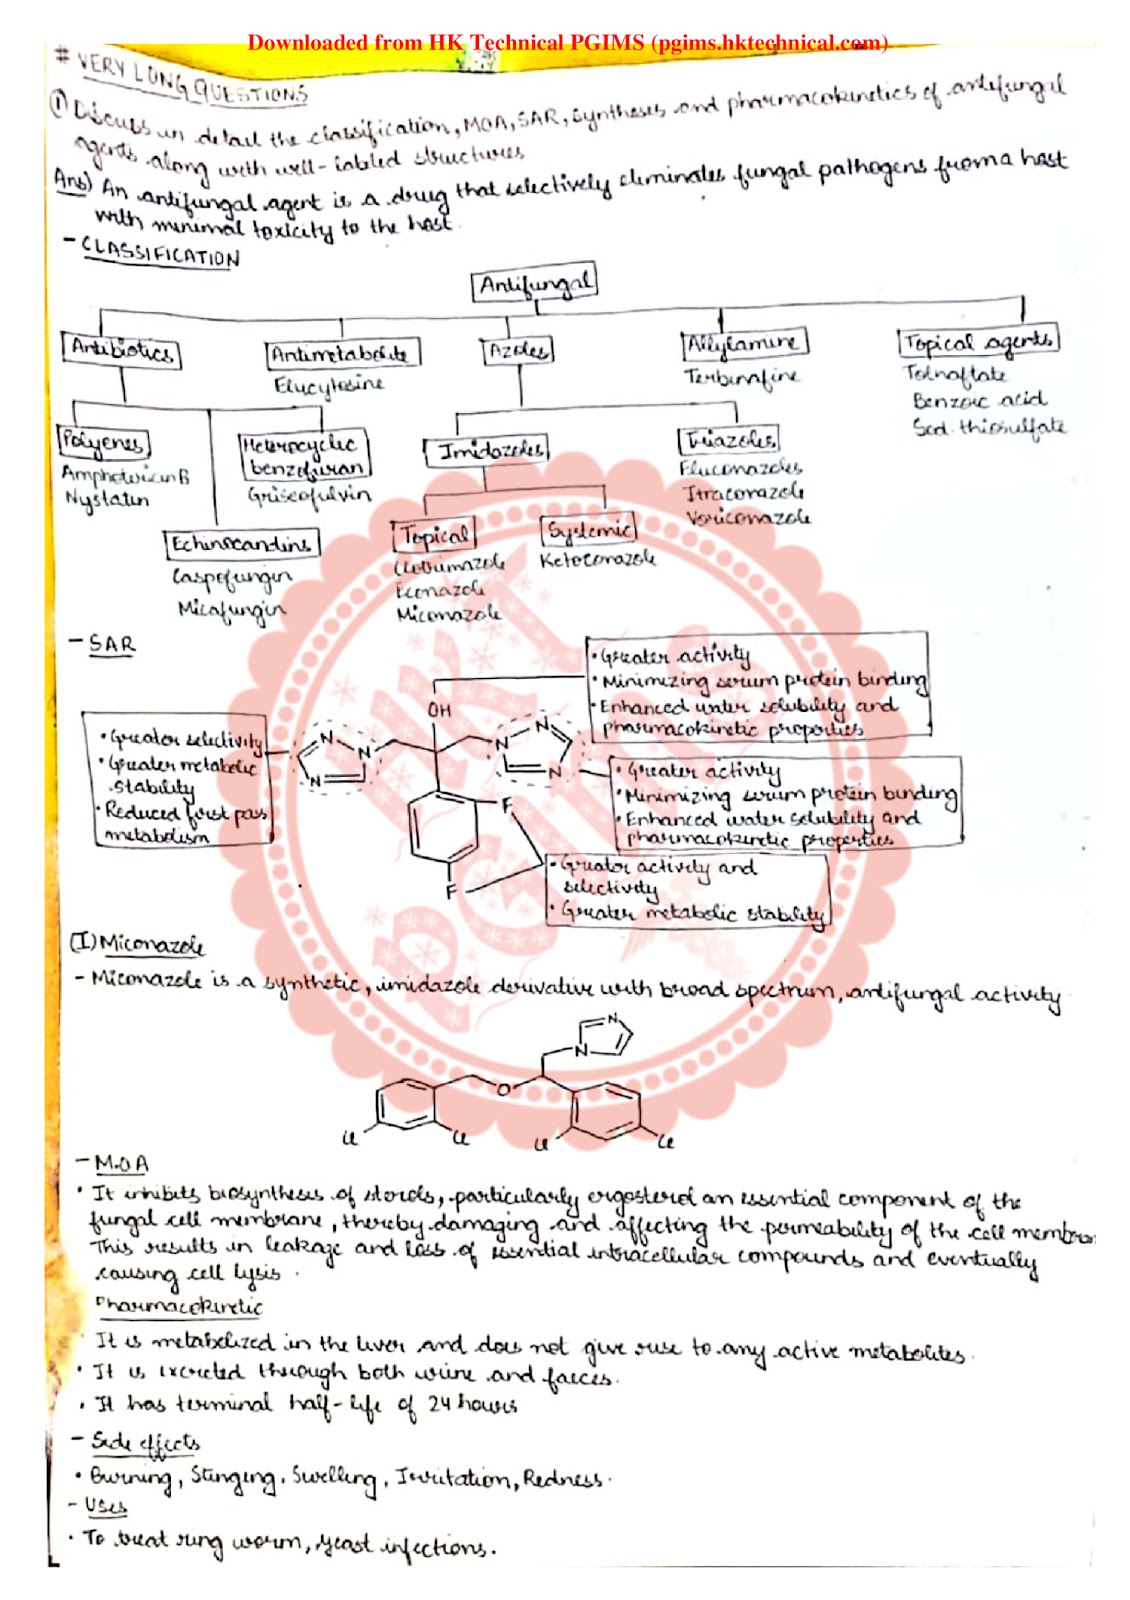 Downloaded from HK Technical PGIMS (pgims.hktechnical.com)
# VERY LONG QUESTIONS
① Discuss in detail the classification, MOA, SAR, syntheses and pharmacokinetics of antifungal
agents along with well-labled structures
Ans) An antifungal agent is a drug that selectively eliminates fungal pathogens from a host
with minimal toxicity to the host.
- CLASSIFICATION
Antifungal
Antibiotics
Antimetabolite
Azoles
Allylamine
Topical agents
Flucytosine
Terbinafine
Tolnaftate
Benzoic acid
Sod. thiosulfate
Polyenes
Amphotericin B
Nystatin
Heterocyclic
benzofuran
Griseofulvin
Imidazoles
Triazoles
Fluconazoles
Itraconazole
Voriconazole
Echinocandins
Caspofungin
Micafungin
Topical
Clotrimazole
Econazole
Miconazole
Systemic
Ketoconazole
- SAR
• Greater activity
• Minimizing serum protein binding
• Enhanced water solubility and
pharmacokinetic properties
OH
• Greater selectivity
• Greater metabolic
stability
• Reduced first pass
metabolism
N
N
N
N
N
N
F
F
• Greater activity
• Minimizing serum protein binding
• Enhanced water solubility and
pharmacokinetic properties
• Greater activity and
selectivity
• Greater metabolic stability
(I) Miconazole
- Miconazole is a synthetic, imidazole derivative with broad spectrum, antifungal activity.
N
N
O
Cl
Cl
Cl
Cl
- M.O.A
• It inhibits biosynthesis of sterols, particularly ergosterol an essential component of the
fungal cell membrane, thereby damaging and affecting the permeability of the cell membran
This results in leakage and loss of essential intracellular compounds and eventually
causing cell lysis.
Pharmacokinetic
It is metabolized in the liver and does not give rise to any active metabolites.
• It is excreted through both urine and faeces.
• It has terminal half-life of 24 hours
- Side effects
• Burning, Stinging, Swelling, Irritation, Redness.
- Uses
• To treat ring worm, yeast infections.
HK
PGIMS